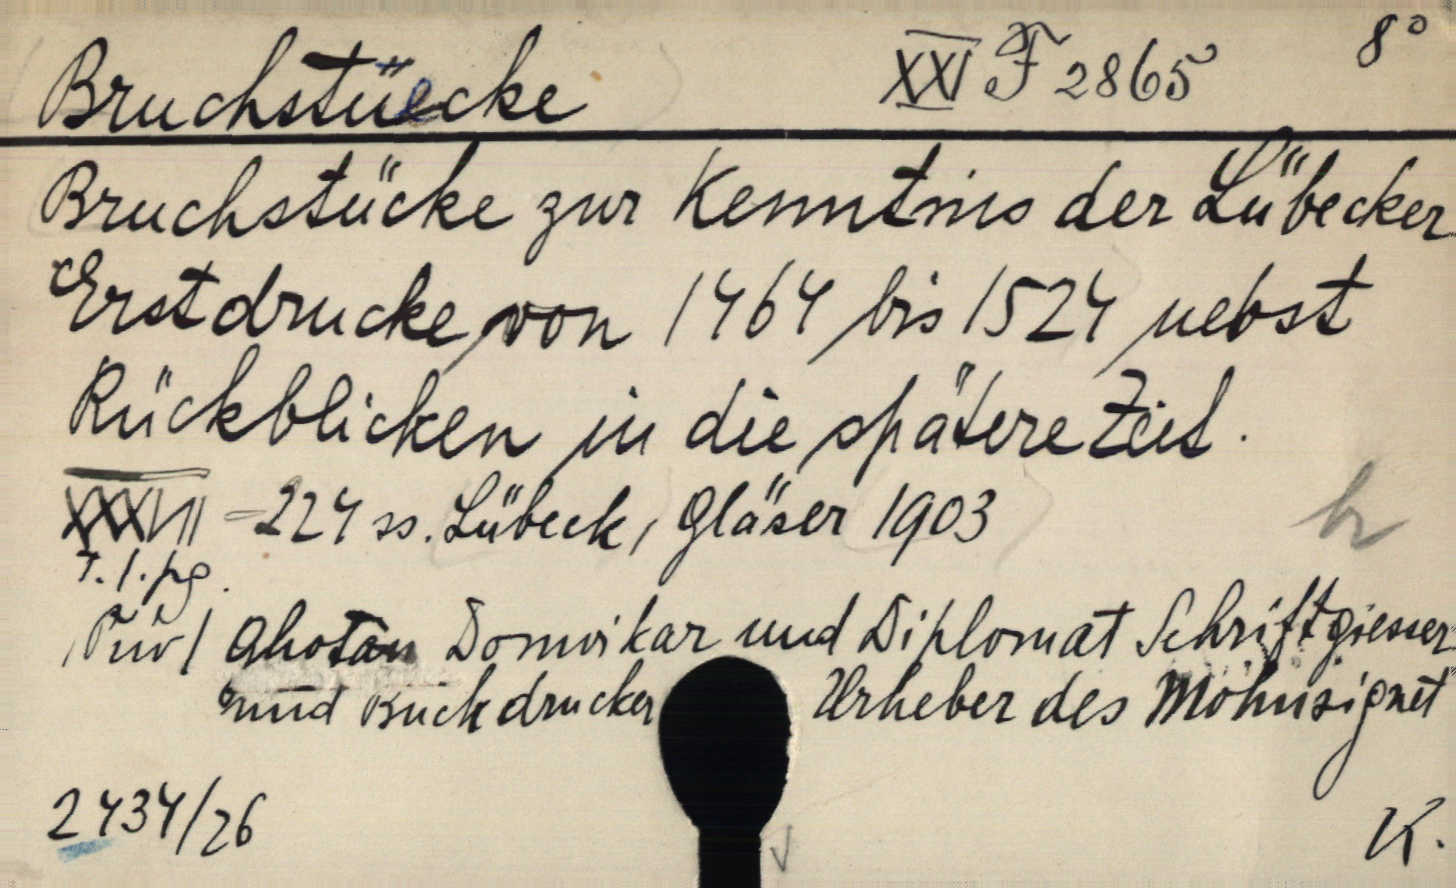 Bruchstüecke XXI F 2865 8°
Bruchstücke zur Kenntnis der Lübecker
Erstdrucke von 1464 bis 1524 nebst
Rückblicken in die spätere Zeit.
XXXVII - 224 ss. Lübeck, Gläser 1903
7. 1. pg.
Ghotan Domvikar und Diplomat Schriftgiesser
und Buckdrucker Urheber des Mohnsignet
2434/26 K.